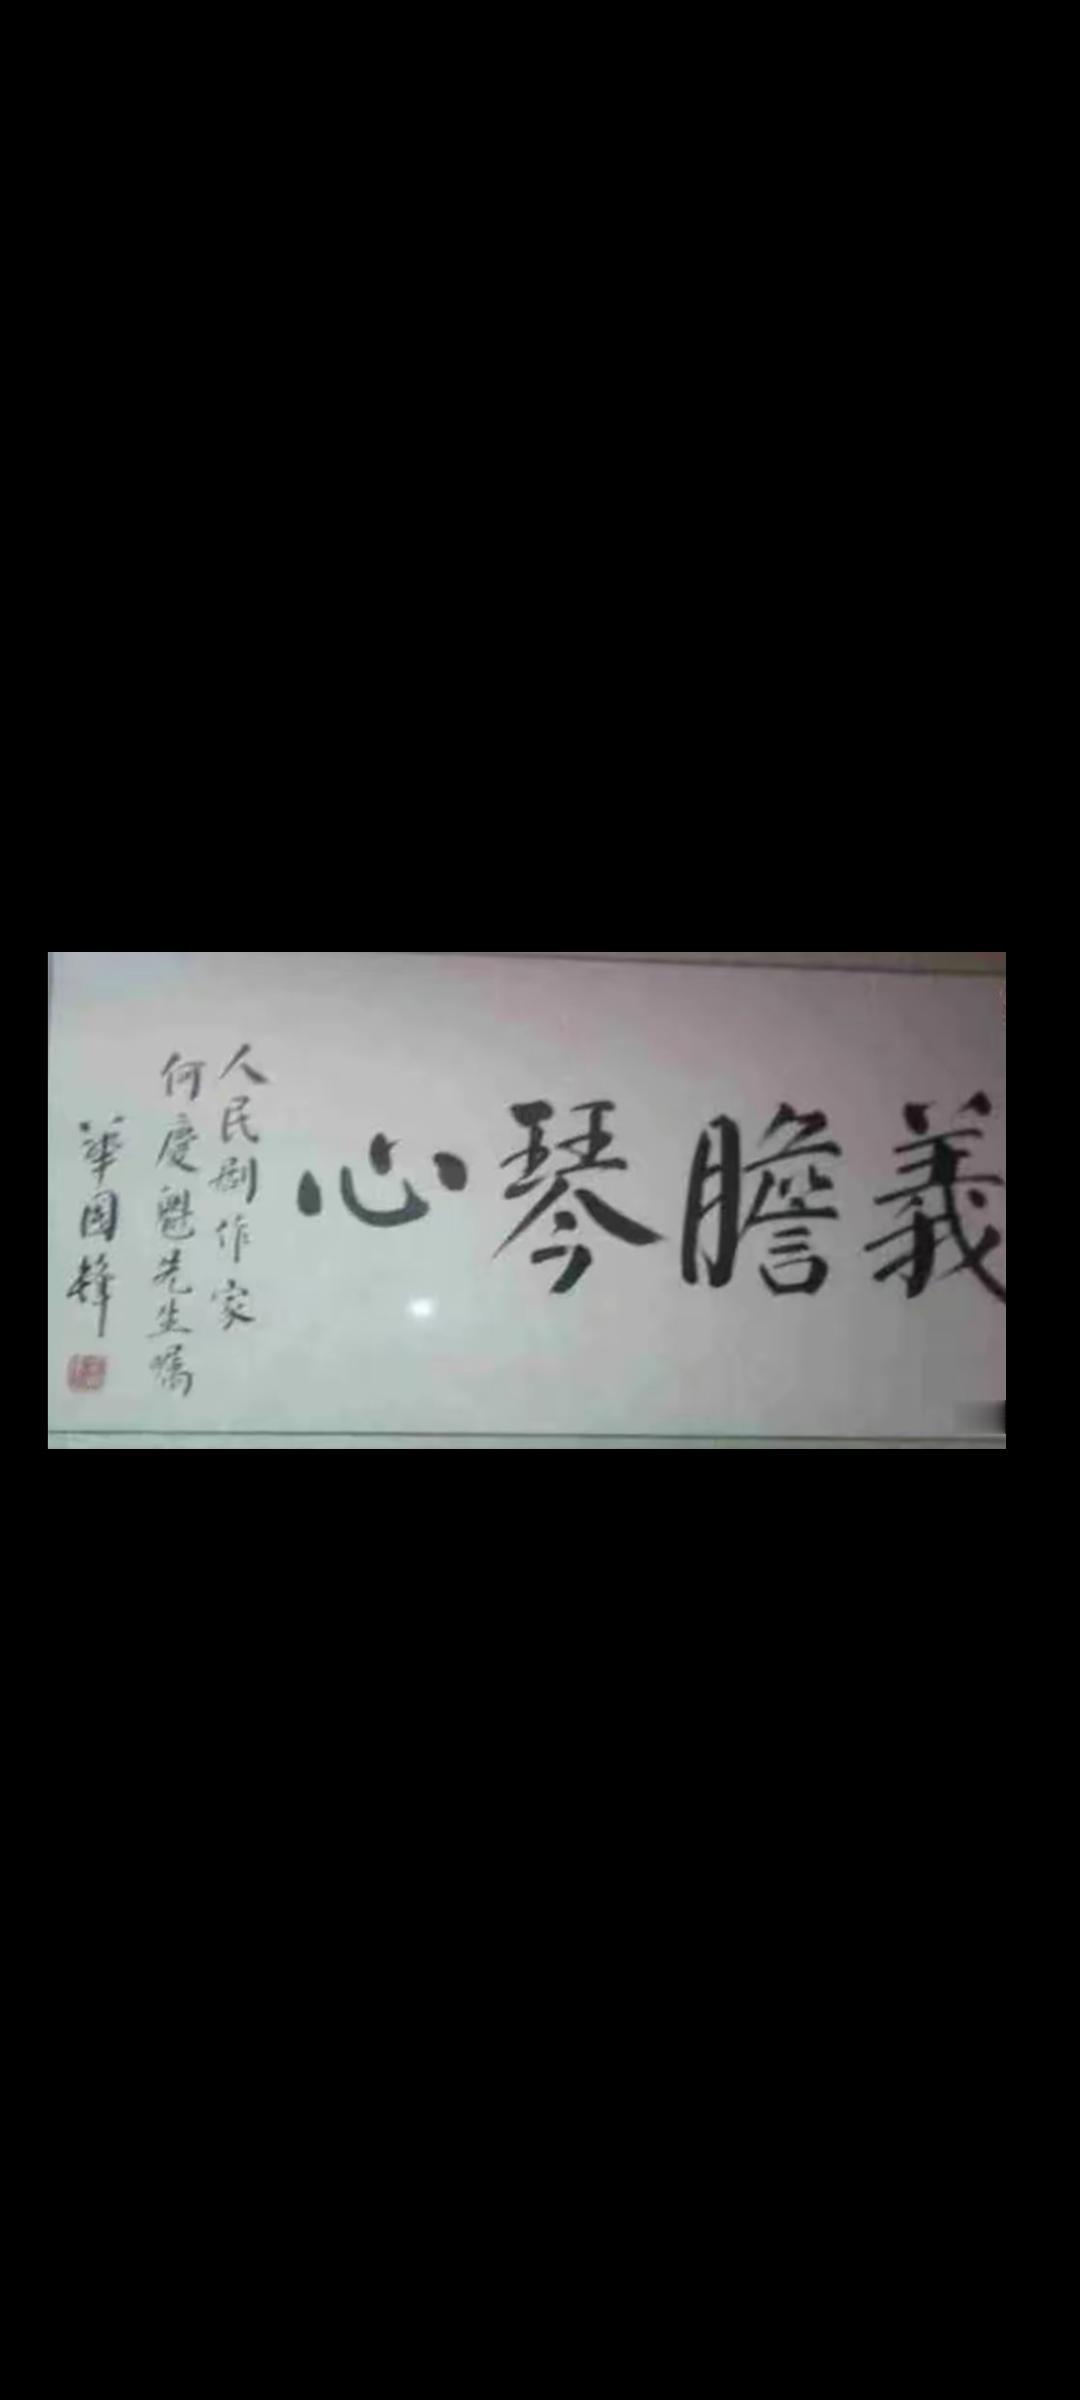 義膽琴心
人民剧作家
何慶魁先生嘱
華国鋒